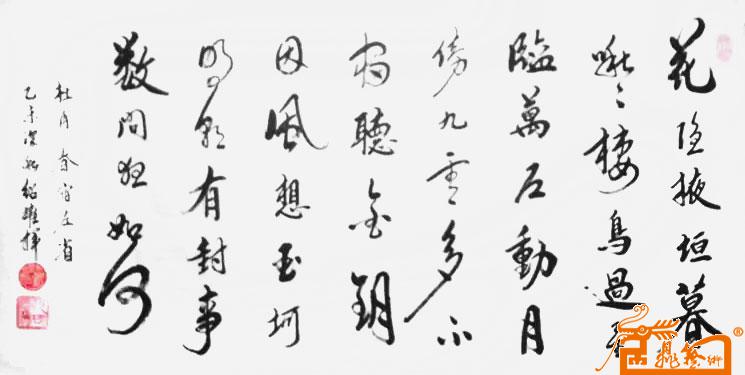 花隐掖垣暮
啾々棲鳥過星
臨萬户動月
傍九霄多不
寝聽金鑰
因風想玉珂
明朝有封事
數問夜如何
杜甫 春宿左省
乙未深秋